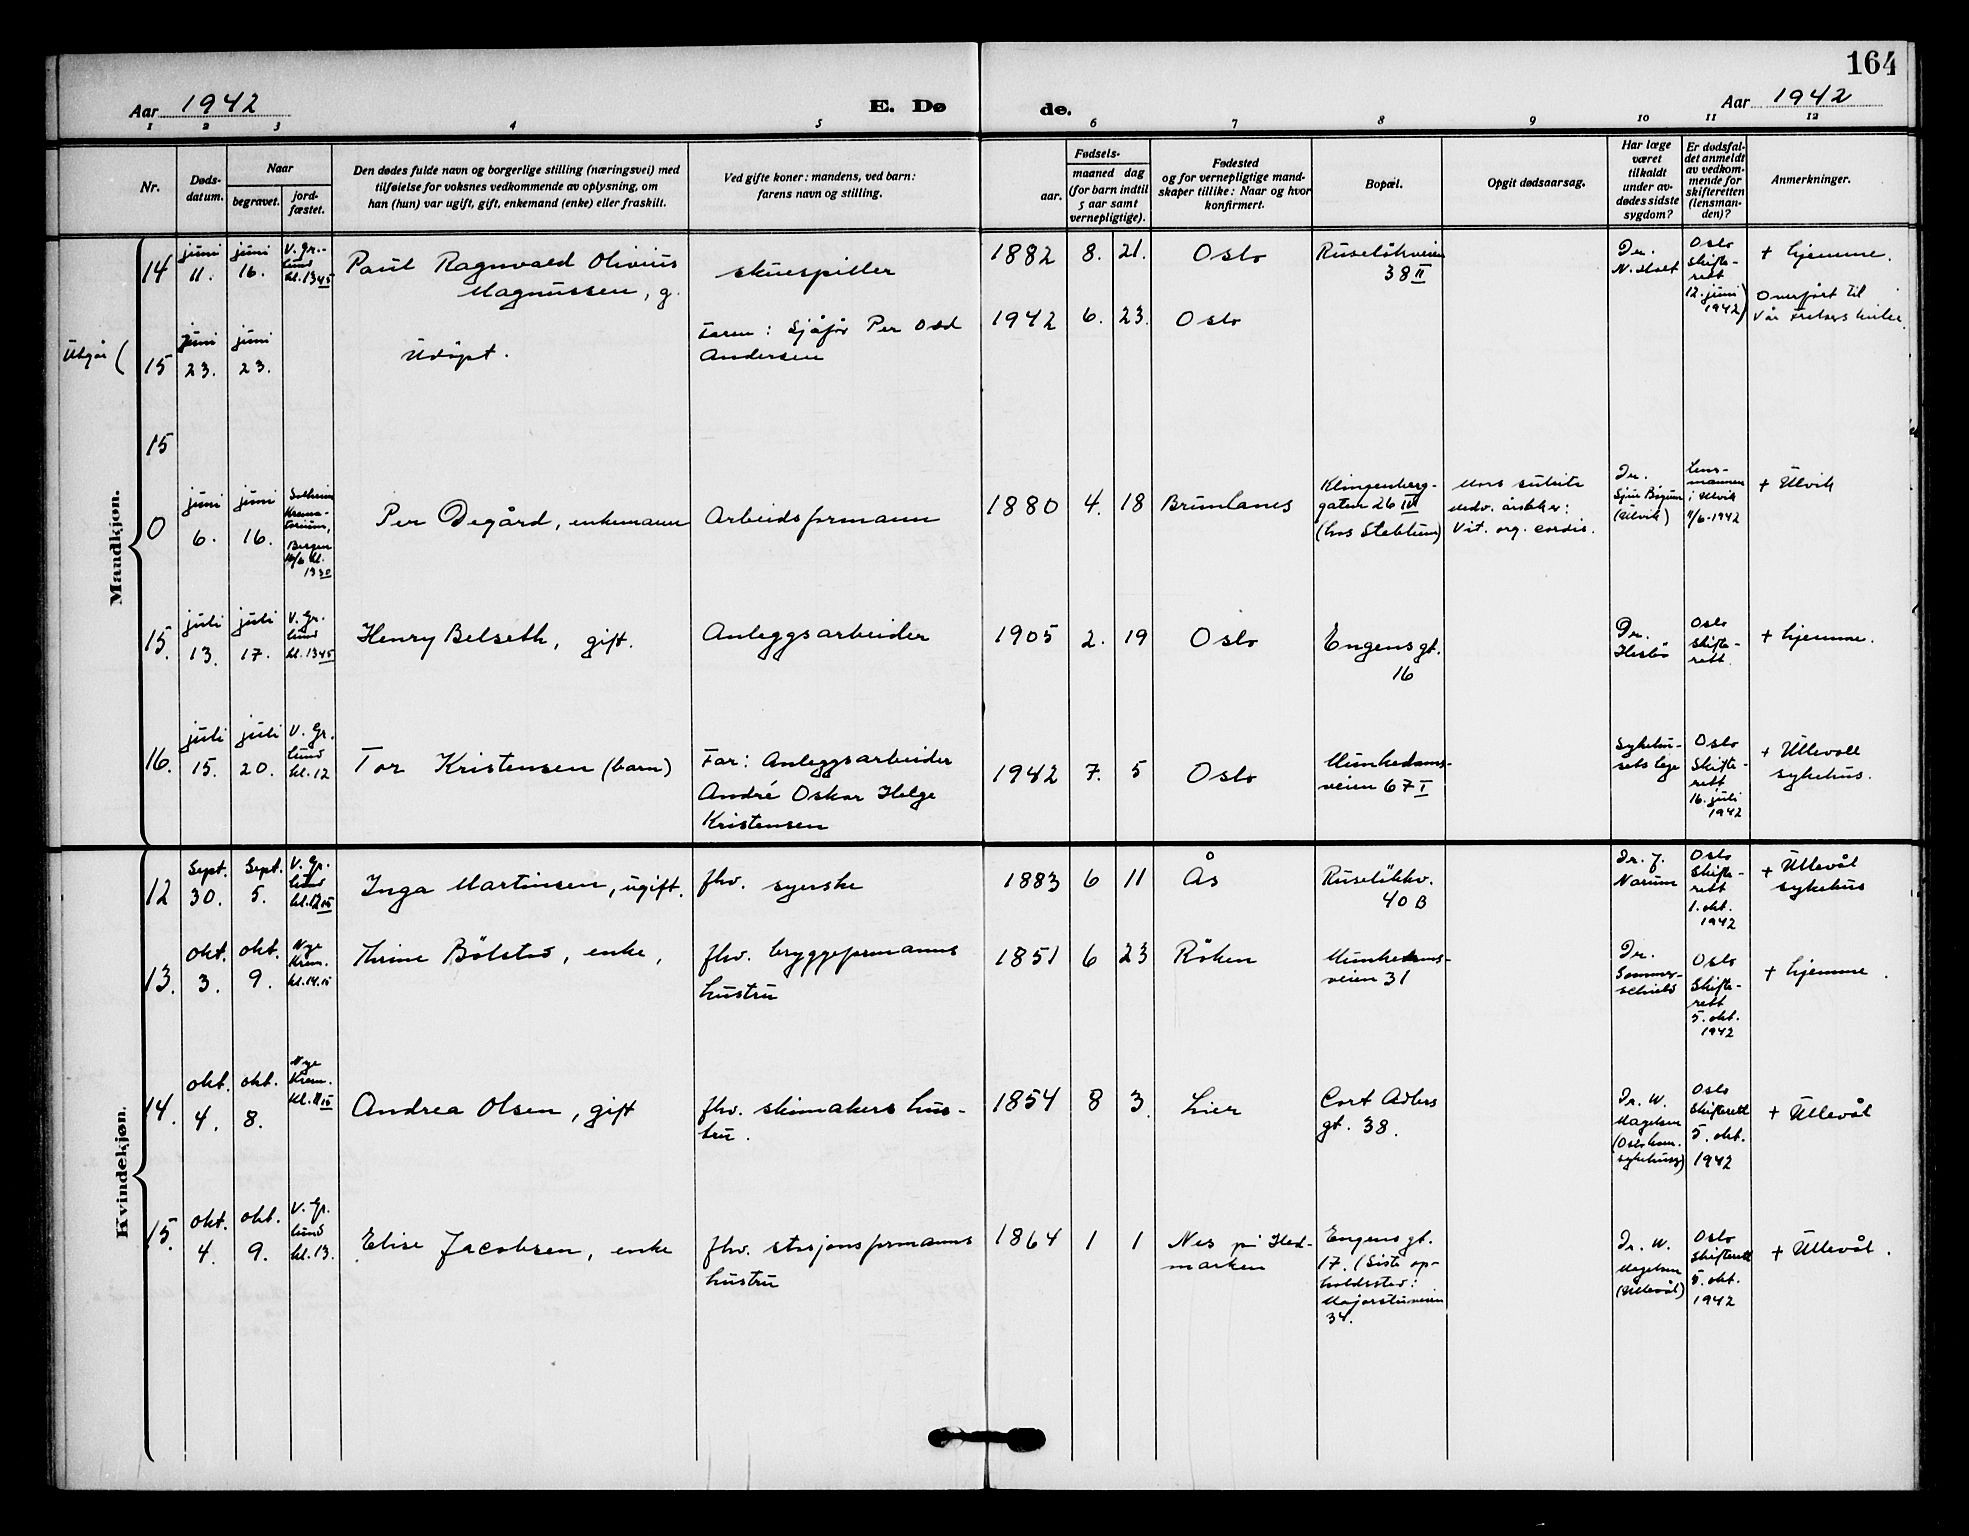 164
Aar 1942
E. Dø
de.
Aar 1942
1 2 3 4 5 6 7 8 9 10 11 12
Nr.
Døds-
datum.
Naar
begravet.
jord-
fæstet.
Den dødes fulde navn og borgerlige stilling (næringsvei) med
tilføielse for voksnes vedkommende av oplysning, om
han (hun) var ugift, gift, enkemand (enke) eller fraskilt.
Ved gifte koner: mandens, ved barn:
farens navn og stilling.
Fødsels-
aar.
maaned dag
(for barn indtil
5 aar samt
vernepligtige).
Fødested
og for vernepligtige mand-
skaper tillike: Naar og hvor
konfirmert.
Bopæl.
Opgit dødsaarsag.
Har læge
været
tilkaldt
under av-
dødes sidste
sygdom?
Er dødsfal-
det anmeldt
av vedkom-
mende for
skifteretten
(lensman-
den)?
Anmerkninger.
Mandkjøn.
14
juni
11.
juni
16.
V. Gr.-
lund
kl. 13 45
Paul Ragnvald Olivius
Magnussen, g.
skuespiller
1882
8.
21.
Oslo
Ruseløkveien
38 II
Dr.
Oslo
skifte-
rett
12. juni
1942
+ hjemme.
Utgår (
15
juni
23.
juni
23.
Udøpt.
Faren: Sjåfør Per Odd
Andersen
1942
6.
23.
Oslo
Overført til
Vår Frelsers
15
0
juni
6.
juni
16.
Solheim
Krema-
torium,
Bergen
16/6 kl.
13 30
Per Degård, enkemann
Arbeidsformann
1880
4.
18
Brunlanes
Klingenberg-
gaten 26 IV
(hos Stokkum)
Mors subita
Vit. org. cordis.
Dr.
(Ulvik)
Lens-
mannen
i Ulvik
11/6-1942
+ Ulvik
15.
juli
13.
juli
17.
V. Gr.
lund
kl. 13 45
Henry Belseth, gift.
Anleggsarbeider
1905
2.
19
Oslo
Engens gt.
16
Dr.
Oslo
Skifte-
rett.
+ hjemme.
16.
juli
15.
juli
20.
V. Gr.
lund
kl. 12
Tor Kristensen (barn)
Far: Anleggsarbeider
André Oskar Helge
Kristensen
1942
7.
5
Oslo
Munkedams-
veien 67 I
Sykehu-
sets lege
Oslo
Skifte-
rett
16. juli
1942
+ Ullevoll
sykehus.
Kvindekjøn.
12
Sept.
30.
Sept.
5.
V. Gr.
lund
kl. 12 15
Inga Martinsen, ugift.
fhv. syerske
1883
6
11
Ås
Ruseløkkv.
40 B
Dr. J.
Narum
Oslo
Skifte-
rett
1. okt.
1942
+ Ullevål
sykehus
13.
okt.
3.
okt.
9.
Nye
Krem.
kl. 14.15
Thrine Bølstad, enke,
fhv. bryggeformanns
hustru
1851
6
23
Røken
Munkedams-
veien 31
Dr.
Sommer-
schield
Oslo
Skifte-
rett
5. okt.
1942
+ hjemme.
14.
okt.
4.
okt.
8.
Nye
Krem.
kl. 11 15
Andrea Olsen, gift
fhv. skimakers hus-
tru.
1854
8
3.
Lier
Cort Adlers
gt. 38.
Dr. W.
Magelsen
(Oslo kom.
sykehus)
Oslo
Skifterett
5. okt.
1942
+ Ullevål
15.
okt.
4.
okt.
9.
V. Gr.
lund
kl. 13.
Elise Jacobsen, enke
fhv. stasjonsformanns
hustru
1864
1
1
Nes på Hed-
marken
Engens gt.
17. (Siste op-
holdssted:
Majorstuveien
34.
Dr. W.
Magelsen
(Ullevål)
Oslo
Skifterett
5. okt.
1942
+ Ullevål.